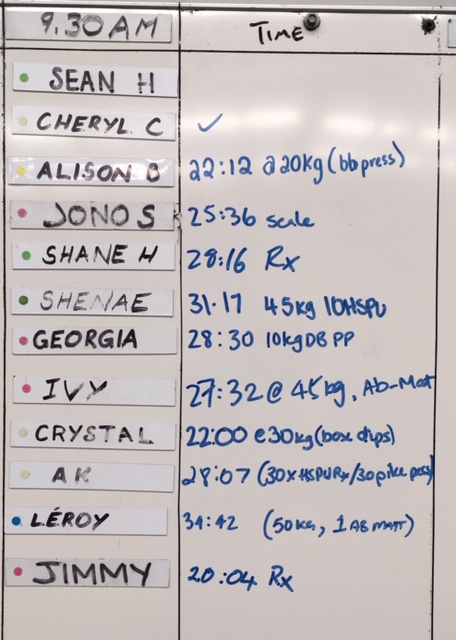 9.30AM TIME
SEAN H
CHERYL. C ✓
ALISON B 22:12 @20kg (bb press)
JONO S 25:36 scale
SHANE H 28:16 Rx
SHENAE 31·17 45kg 10HSPU
GEORGIA 28:30 10kg DB PP
IVY 27:32 @ 45kg, Ab-Mat
CRYSTAL 22:00 @30kg (box dips)
AK 28:07 (30xHSPU Rx/30 pike press)
LÉROY 34:42 (50KG, 1 AB MATT)
JIMMY 20:04 Rx